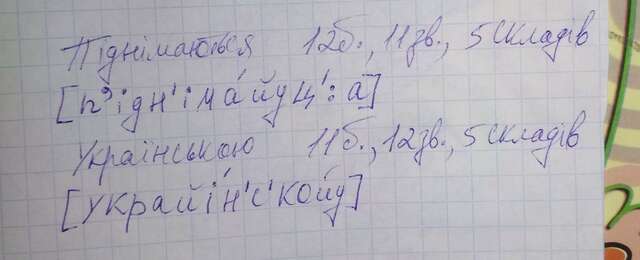 Піднімаються 12б., 11зв., 5 складів
[п’ідн'іма́йуц':а]
Українською 11б., 12зв., 5 складів
[украйі́н'с'койу]